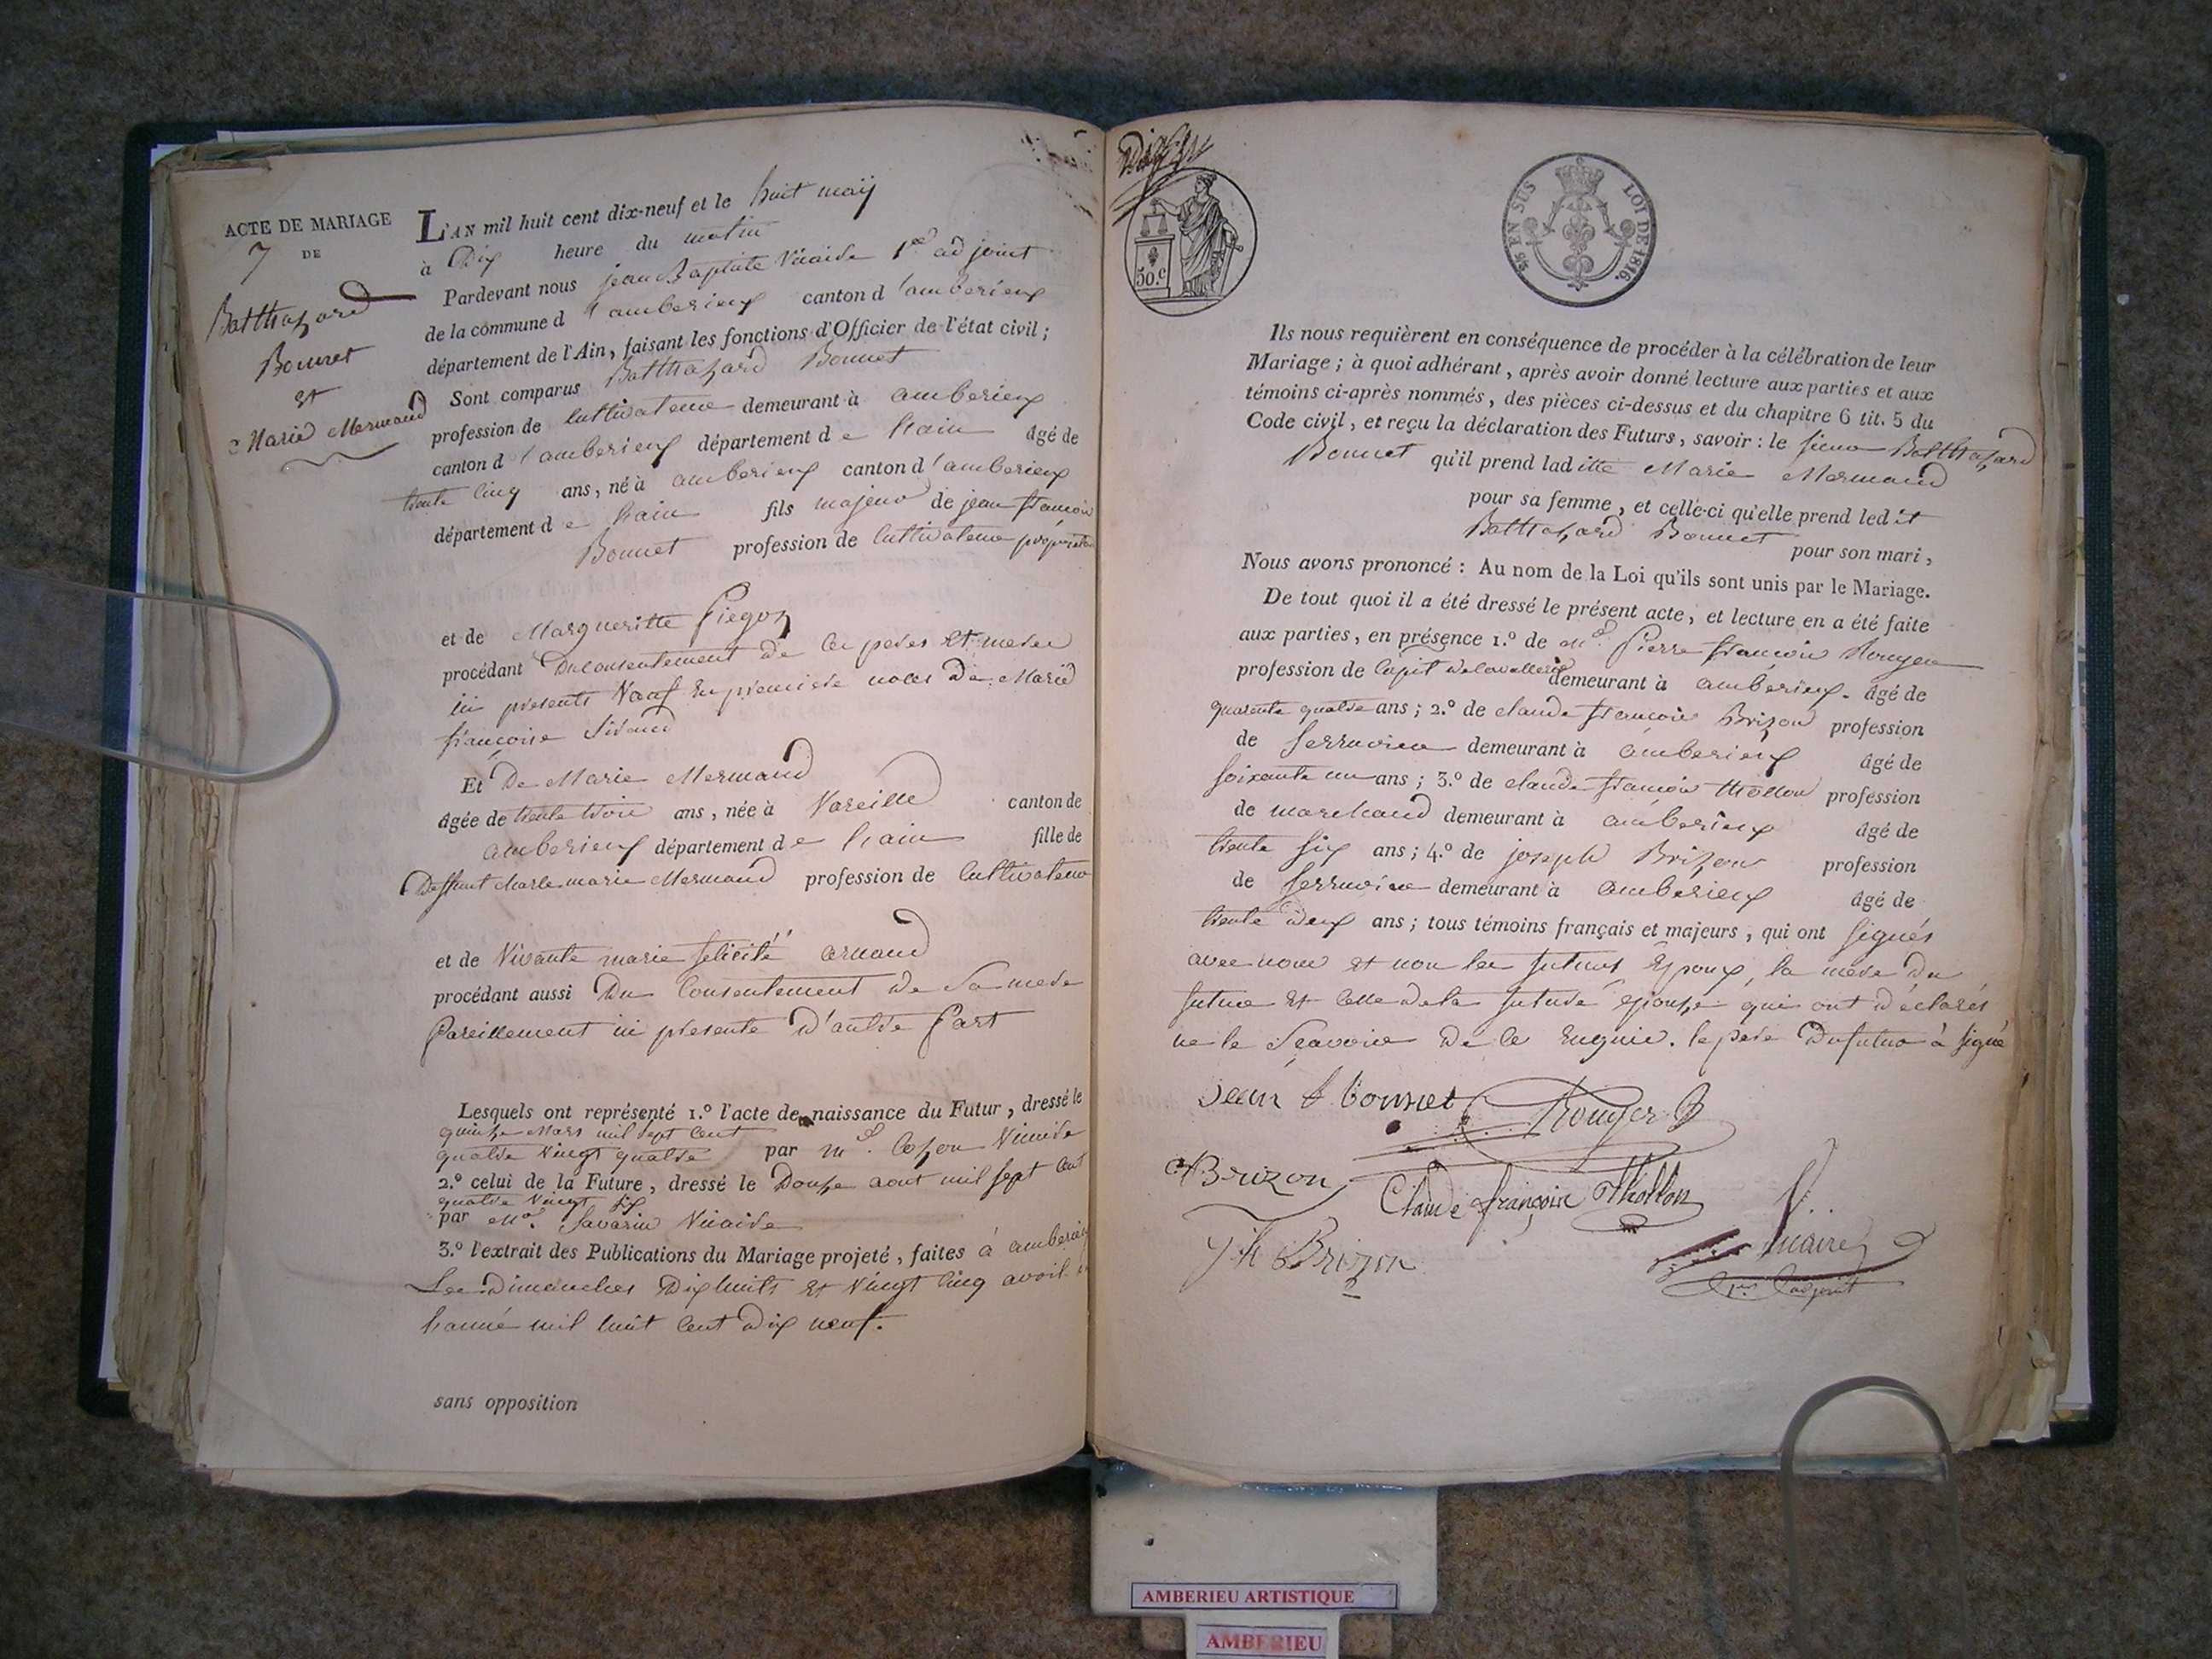 ACTE DE MARIAGE
7 DE
Balthazard
Bonnet
et
Marie Mermand
L'AN mil huit cent dix-neuf et le huit maÿ
à Dix heure du matin
Pardevant nous jean Baptiste Vicaire 1er adjoint
de la commune d'amberieux canton d'amberieux
département de l'Ain, faisant les fonctions d'Officier de l'état civil;
Sont comparus Balthazard Bonnet
profession de Cultivateur demeurant à amberieux
canton d'amberieux département de Lain âgé de
trente Cinq ans, né à amberieux canton d'amberieux
département de Lain fils majeur de jean françois
Bonnet profession de Cultivateur propriétaire
et de Margueritte Piegoz
procédant Du Consentement de Ces peres et meres
ici presents Vauf En premiere noces De Marie
françoise Sivaud
Et De Marie Mermand
âgée de trente trois ans, née à Vareille canton de
amberieux département de Lain fille de
Deffunt charle marie Mermand profession de Cultivateur
et de Vivante marie felicité arnaud
procédant aussi Du Consentement de Sa mere
Pareillement ici presente D'autre Part
Lesquels ont représenté 1.º l'acte de naissance du Futur, dressé le
quinze Mars mil sept Cent
quatre Vingt quatre par mr. Cozon Vicaire
2.º celui de la Future, dressé le Douze aout mil sept Cent
quatre Vingt six
par Mr. Savarin Vicaire
3.º l'extrait des Publications du Mariage projeté, faites à amberieux
Les Dimenches Dixhuits et Vingt Cinq avril
Lanné mil huit Cent Dix neuf.
sans opposition
50.c
¼ EN SUS
LOI DE 1816.
Ils nous requièrent en conséquence de procéder à la célébration de leur
Mariage; à quoi adhérant, après avoir donné lecture aux parties et aux
témoins ci-après nommés, des pièces ci-dessus et du chapitre 6 tit. 5 du
Code civil, et reçu la déclaration des Futurs, savoir: le sieur Balthazard
Bonnet qu'il prend laditte Marie Mermand
pour sa femme, et celle-ci qu'elle prend ledit
Balthazard Bonnet pour son mari,
Nous avons prononcé: Au nom de la Loi qu'ils sont unis par le Mariage.
De tout quoi il a été dressé le présent acte, et lecture en a été faite
aux parties, en présence 1.º de mr. Pierre françois Rouger
profession de Capit de Cavallerie demeurant à amberieux. âgé de
quarente quatre ans; 2.º de claude françois Brizon profession
de Serrurier demeurant à amberieux âgé de
soixante un ans; 3.º de claude françois thollon profession
de marchand demeurant à amberieux âgé de
trente six ans; 4.º de joseph Brizon profession
de Serrurier demeurant à amberieux âgé de
trente deux ans; tous témoins français et majeurs, qui ont Signés
avec nous et non les futurs Epoux, la mere du
futur et Celle de la future épouse qui ont déclarés
ne le Sçavoir De Ce Enquis. le pere Du futur à Signé
Jean f bonnet Rouger
Brizon Claude françois Thollon
Jh Brizon
V.. Vicaire
1er adjoint
AMBERIEU ARTISTIQUE
AMBERIEU